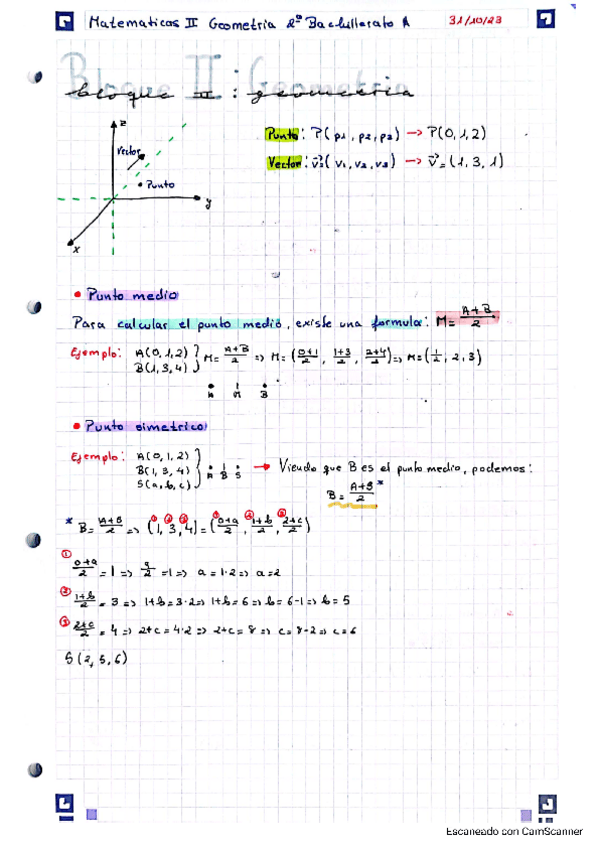 Matematicas II Geometria 2º Bachillerato A 31/10/23
Bloque II: Geometria
bloque II : geometria
z
Vector
Punto
y
x
Punto: P(p1, p2, p3) → P(0,1,2)
Vector: v⃗(v1, v2, v3) → v⃗=(1,3,1)
• Punto medio
Para calcular el punto medio, existe una formula: M= A+B/2
Ejemplo: A(0,1,2) B(1,3,4) } M= A+B/2 => M= (0+1/2, 1+3/2, 2+4/2) => M=(1/2, 2, 3)
A M B
• Punto simetrico
Ejemplo: A(0,1,2) B(1,3,4) S(a,b,c) } A B S → Viendo que B es el punto medio, podemos:
B= A+S/2 *
* B= A+B/2 => (1, 3, 4) = (0+a/2, 1+b/2, 2+c/2)
① 0+a/2 = 1 => a/2 = 1 => a = 1·2 => a=2
② 1+b/2 = 3 => 1+b = 3·2 => 1+b = 6 => b = 6-1 => b = 5
③ 2+c/2 = 4 => 2+c = 4·2 => 2+c = 8 => c = 8-2 => c = 6
S(2, 5, 6)
Escaneado con CamScanner